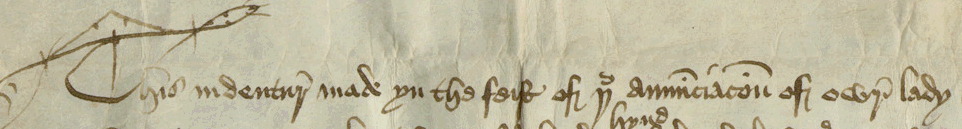 This indentur made yn the fest of þe annunciacoun of owr lady